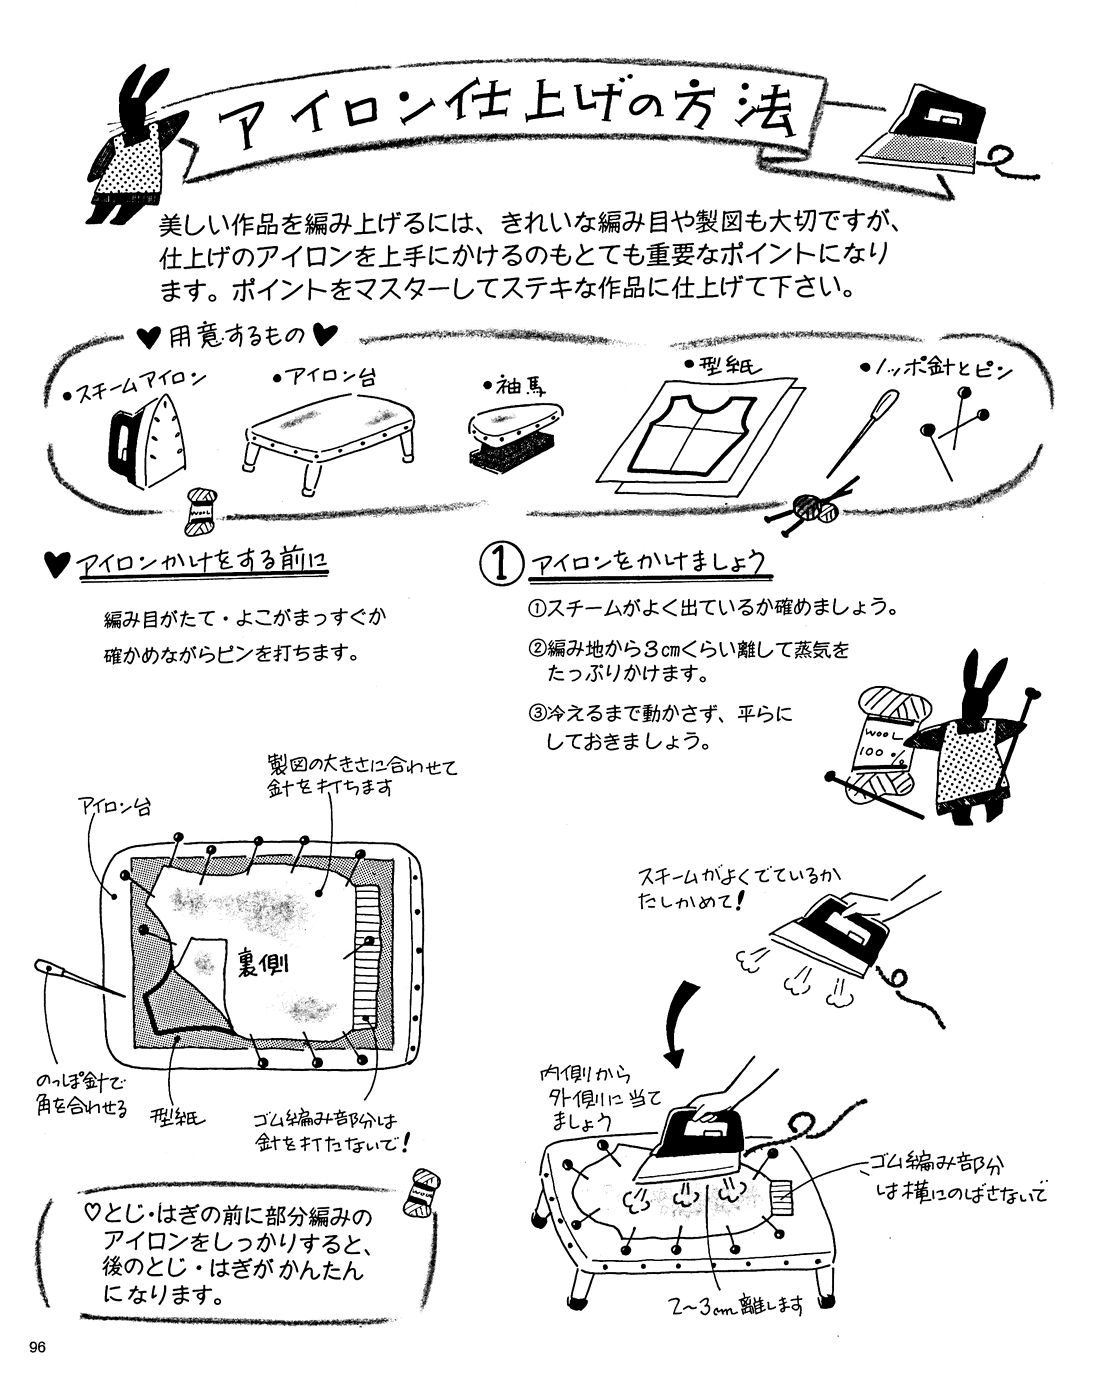 アイロン仕上げの方法
美しい作品を編み上げるには、きれいな編み目や製図も大切ですが、
仕上げのアイロンを上手にかけるのもとても重要なポイントになり
ます。ポイントをマスターしてステキな作品に仕上げて下さい。
♥用意するもの♥
●スチームアイロン
●アイロン台
●袖馬
●型紙
●ノッポ針とピン
WOOL
♥アイロンかけをする前に
編み目がたて・よこがまっすぐか
確かめながらピンを打ちます。
製図の大きさに合わせて
針を打ちます
アイロン台
裏側
のっぽ針で
角を合わせる
型紙
ゴム編み部分は
針を打たないで!
♡とじ・はぎの前に部分編みの
アイロンをしっかりすると、
後のとじ・はぎがかんたん
になります。
WOOL
① アイロンをかけましょう
①スチームがよく出ているか確めましょう。
②編み地から3cmくらい離して蒸気を
たっぷりかけます。
③冷えるまで動かさず、平らに
しておきましょう。
WOOL
100%
スチームがよくでているか
たしかめて!
内側から
外側に当て
ましょう
ゴム編み部分
は横にのばさないで
2〜3cm離します
96